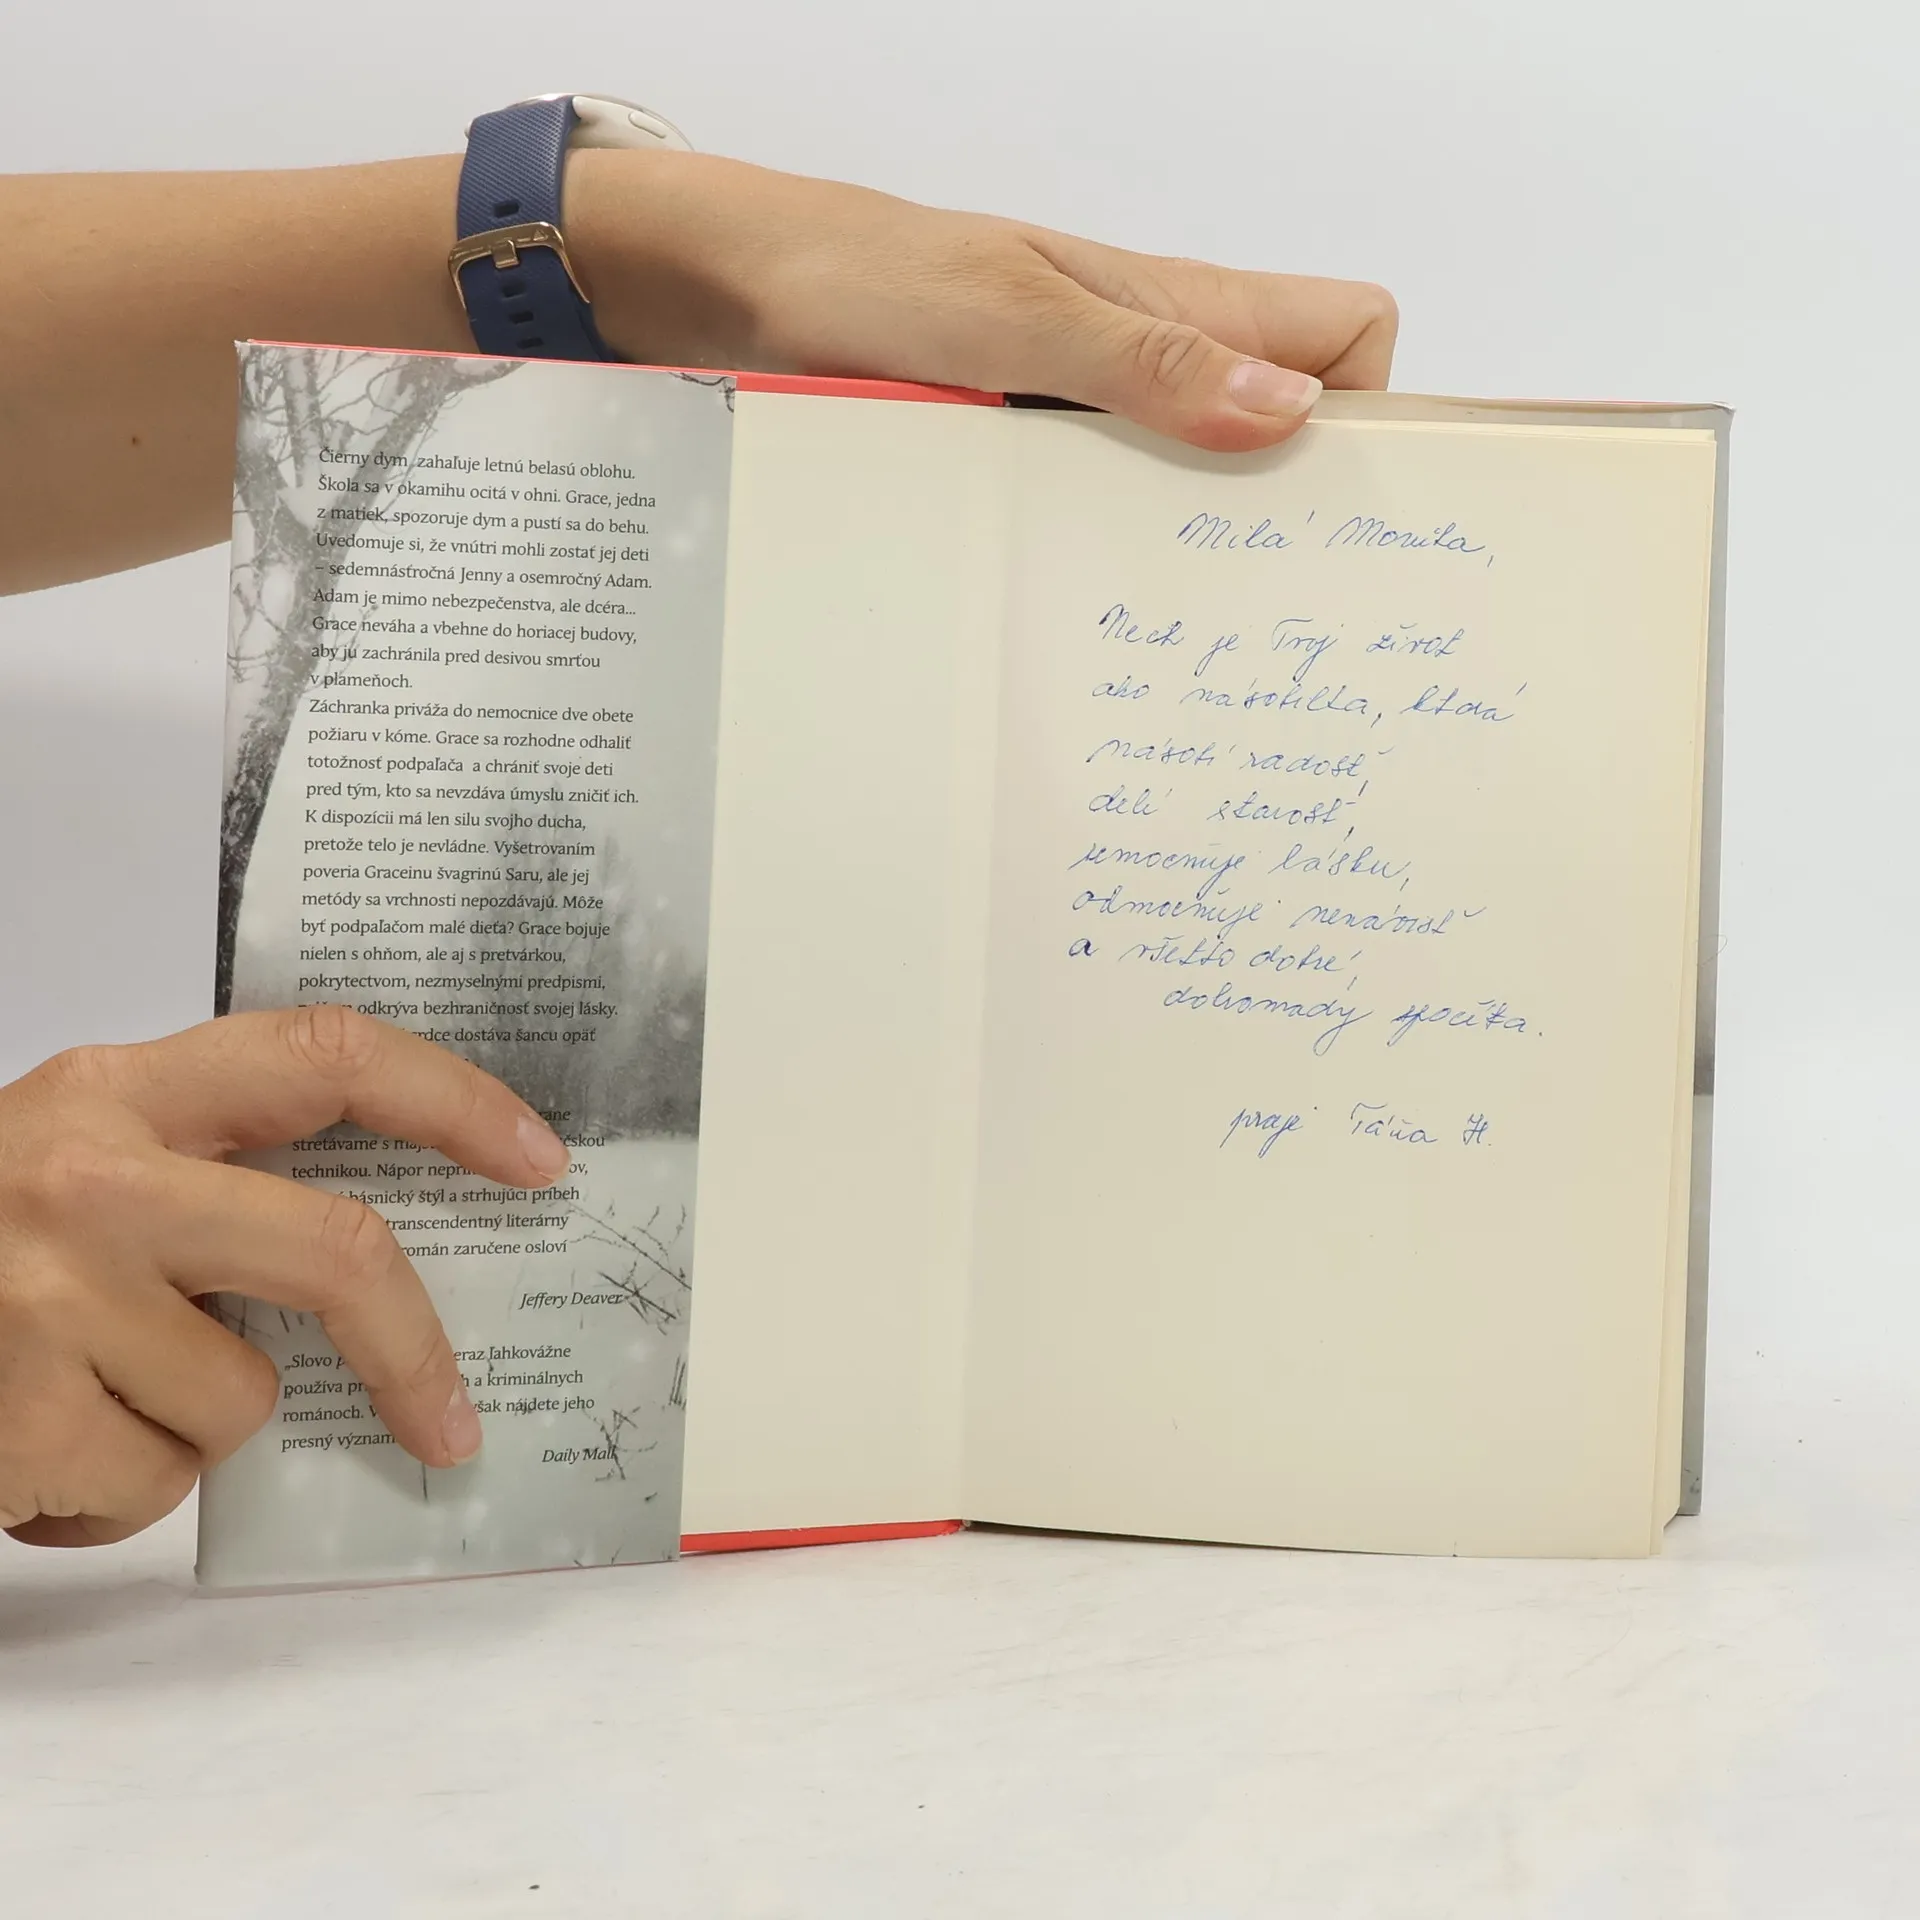 Čierny dym zahaľuje letnú belasú oblohu.
Škola sa v okamihu ocitá v ohni. Grace, jedna
z matiek, spozoruje dym a pustí sa do behu.
Uvedomuje si, že vnútri mohli zostať jej deti
– sedemnásťročná Jenny a osemročný Adam.
Adam je mimo nebezpečenstva, ale dcéra...
Grace neváha a vbehne do horiacej budovy,
aby ju zachránila pred desivou smrťou
v plameňoch.
Záchranka priváža do nemocnice dve obete
požiaru v kóme. Grace sa rozhodne odhaliť
totožnosť podpaľača a chrániť svoje deti
pred tým, kto sa nevzdáva úmyslu zničiť ich.
K dispozícii má len silu svojho ducha,
pretože telo je nevládne. Vyšetrovaním
poveria Graceinu švagrinú Saru, ale jej
metódy sa vrchnosti nepozdávajú. Môže
byť podpaľačom malé dieťa? Grace bojuje
nielen s ohňom, ale aj s pretvárkou,
pokrytectvom, nezmyselnými predpismi,
odkrýva bezhraničnosť svojej lásky.
dostáva šancu opäť
stretávame s
technikou. Nápor
básnický štýl a strhujúci príbeh
transcendentný literárny
román zaručene osloví
Jeffery Deaver
„Slovo ľahkovážne
používa a kriminálnych
románoch. však nájdete jeho
presný význam
Daily Mail
Milá Monika,
Nech je Tvoj život
ako násobilka, ktorá
násobí radosť,
delí starosť,
zmocňuje lásku,
odmocňuje nenávisť
a všetko dobré,
dohromady spočíta.
praje Táňa H.